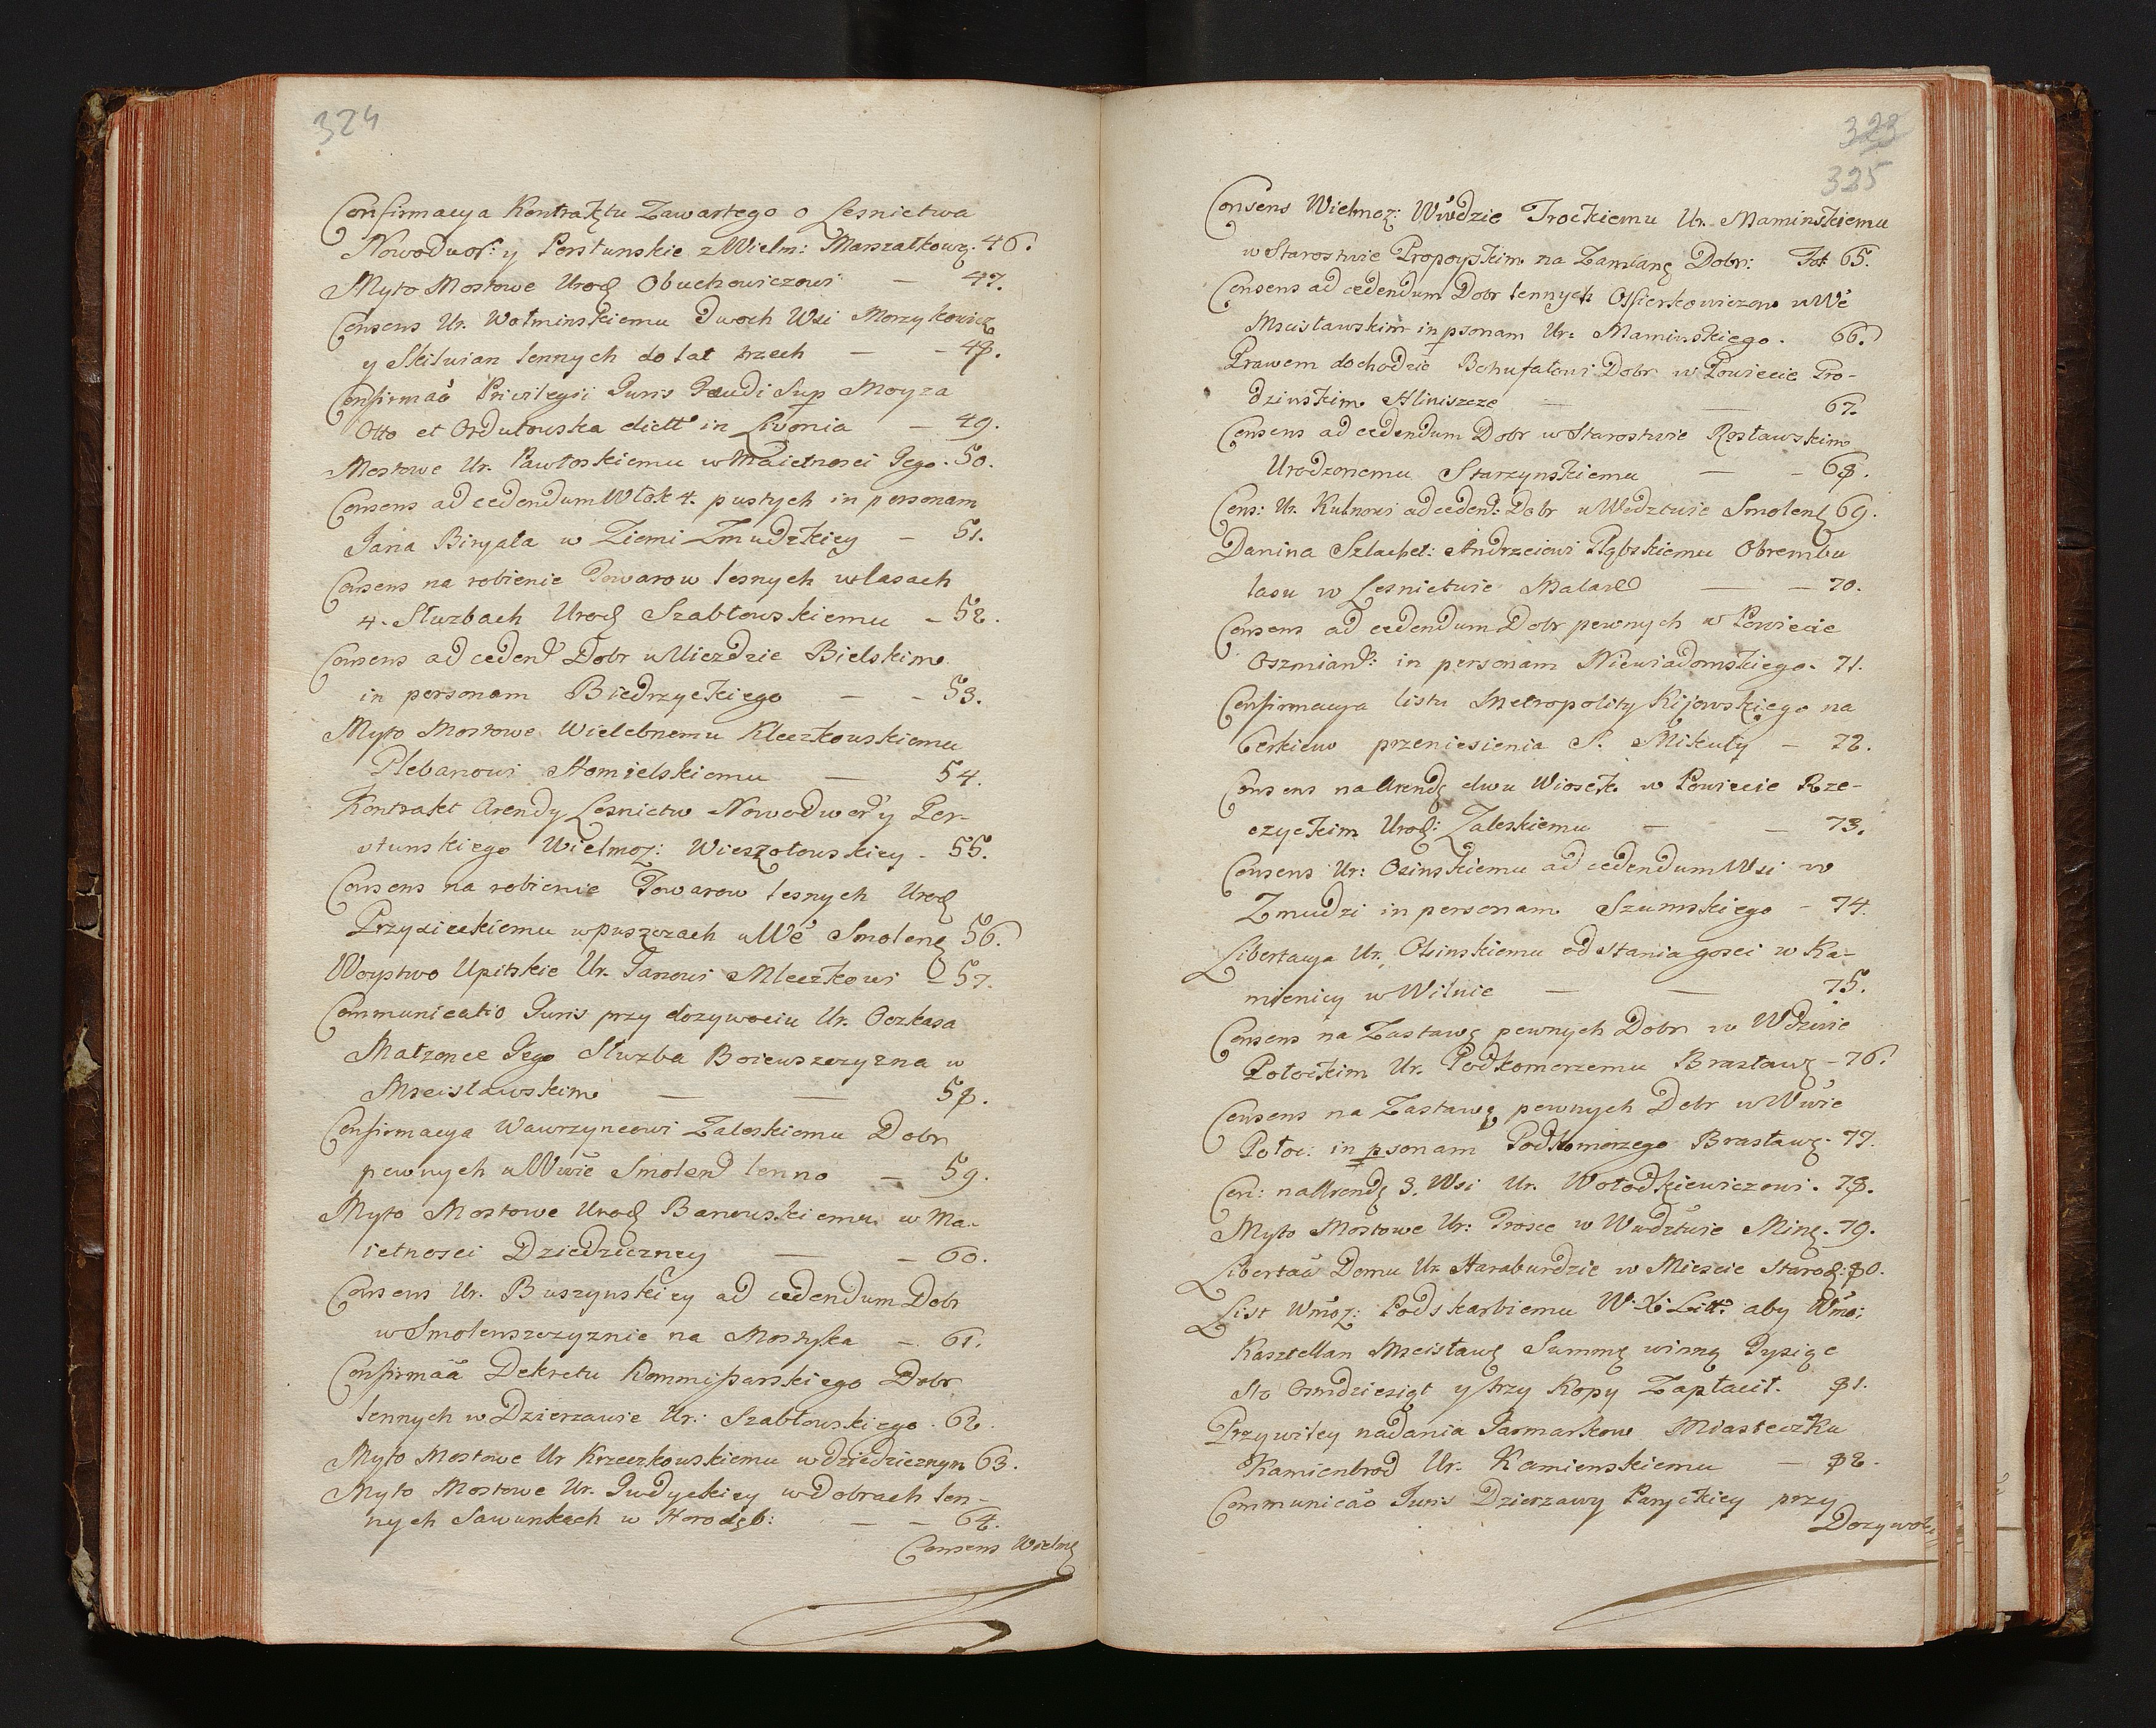 324
Confirmacya Kontraktu Zawartego o Lesnictwa
Nowodwor: y Perstunskie z Wielm: Marszałkową. 46.
Myto Mostowe Urodz Obuchowiczowi — 47.
Consens Ur. Wołminskiemu Dwoch Wsi Morzykowicz
y Skilwian lennych do lat trzech — - 48.
Confirmaó Privilegii Juris Feudi Sup Moyza
Otto et Ordulowska dictt in Livonia — 49.
Mostowe Ur. Pawłoskiemu w Maietnosci Jego. 50.
Consens ad cedendum Włok 4. pustych in personam
Jana Birżała w Ziemi Zmudzkiey — 51.
Consens na robienie Towarow lesnych w lasach
4. Służbach Urodz Szabłowskiemu - 52.
Consens ad cedend Dobr w Uiezdzie Bielskim
in personam Biedrzyckiego — - 53.
Myto Mostowe Wielebnemu Kleczkowskiemu
Plebanowi Homielskiemu — 54.
Kontrakt Arendy Lesnictw Nowodwor y Per-
stunskiego Wielmoz: Wieszołowskiey - 55.
Consens na robienie Towarow lesnych Urodz
Przysieckiemu w puszczach w Wé Smolensk 56.
Woystwo Upitskie Ur. Janowi Mleczkowi - 57.
Communicatio Juris przy dozywociu Ur. Oczkasa
Małzonce Jego Służba Boiewszczyzna w
Mscisławskim — — 58.
Confirmacya Wawrzyncowi Zaleskiemu Dobr
pewnych w Wwie Smolen lenno — 59.
Myto Mostowe Urodz Banowskiemu w Ma-
ietnosci Dziedziczney — - 60.
Consens Ur. Buszynskiey ad cedendum Dobr
w Smolenszczyznie na Mostyka — 61.
Confirmaã Dekretu Kommissarskiego Dobr
lennych w Dzierzawie Ur: Szabłowskiego. 62.
Myto Mostowe Ur Krzeczkowskiemu w dziedzicznym 63.
Myto Mostowe Ur. Judyckiey w Dobrach len-
nych Sawunkach w Horodzb: — — 64.
Consens Wielmz
323
325
Consens Wielmoz: Wwdzie Trockiemu Ur. Maminskiemu
w Starostwie Propoyskim na Zamianę Dobr: Fol 65.
Consens ad cedendum Dobr lennych Ossierkowiczow w Wé
Mscisławskim in psonam Ur: Maminskiego. 66.
Prawem dochodzić Bohufałowi Dobr w Powiecie Gro-
dzinskim Hliniszcze — — 67.
Consens ad cedendum Dobr w Starostwie Rosławskim
Urodzonemu Starzynskiemu — - 68.
Cons: Ur. Kulnowi ad cedend: Dobr w Wodztwie Smolensk 69.
Danina Szlachet: Andrzeiowi Rgbskiemu Obrembu
lasu w Lesnictwie Malawd — - 70.
Consens ad cedendum Dobr pewnych w Powiecie
Oszmians: in personam Niewiadomskiego. 71.
Confirmacya listu Metropolity Kijowskiego na
Cerkiew przeniesienia S. Mikuły — 72.
Consens na Arendę dwu Wiosek w Powiecie Rze-
czyckim Urodz: Zaleskiemu — - 73.
Consens Ur: Osinskiemu ad cedendum Wsi w
Zmudzi in personam Szumskiego - 74.
Libertacya Ur. Osinskiemu od stania gosci w Ka-
mienicy w Wilnie — — 75.
Consens na Zastawę pewnych Dobr w Wdztwie
Połockim Ur. Podkomorzemu Brasławs - 76.
Consens na Zastawę pewnych Dobr w Wwie
Połoc: in psonam Podkomorzego Brasławs. 77.
Con: na Arendę 3. Wsi Ur. Wołodkiewiczowi. 78.
Myto Mostowe Ur: Prosce w Wwdztwie Mins. 79.
Libertaã Domu Ur. Haraburdzie w Miescie Starod: 80.
List Wmoz: Podskarbiemu W. X: Litt: aby Wmo:
Kasztellan Mscisławs Summę winną Tysiąc
Sto Osmdziesiąt y trzy Kopy Zapłacił. 81.
Przywiley nadania Jarmarkow Miasteczku
Kamienbrod Ur. Kamienskiemu — 82.
Communicaó Juris Dzierzawy Paryckiey przy
Dozywo